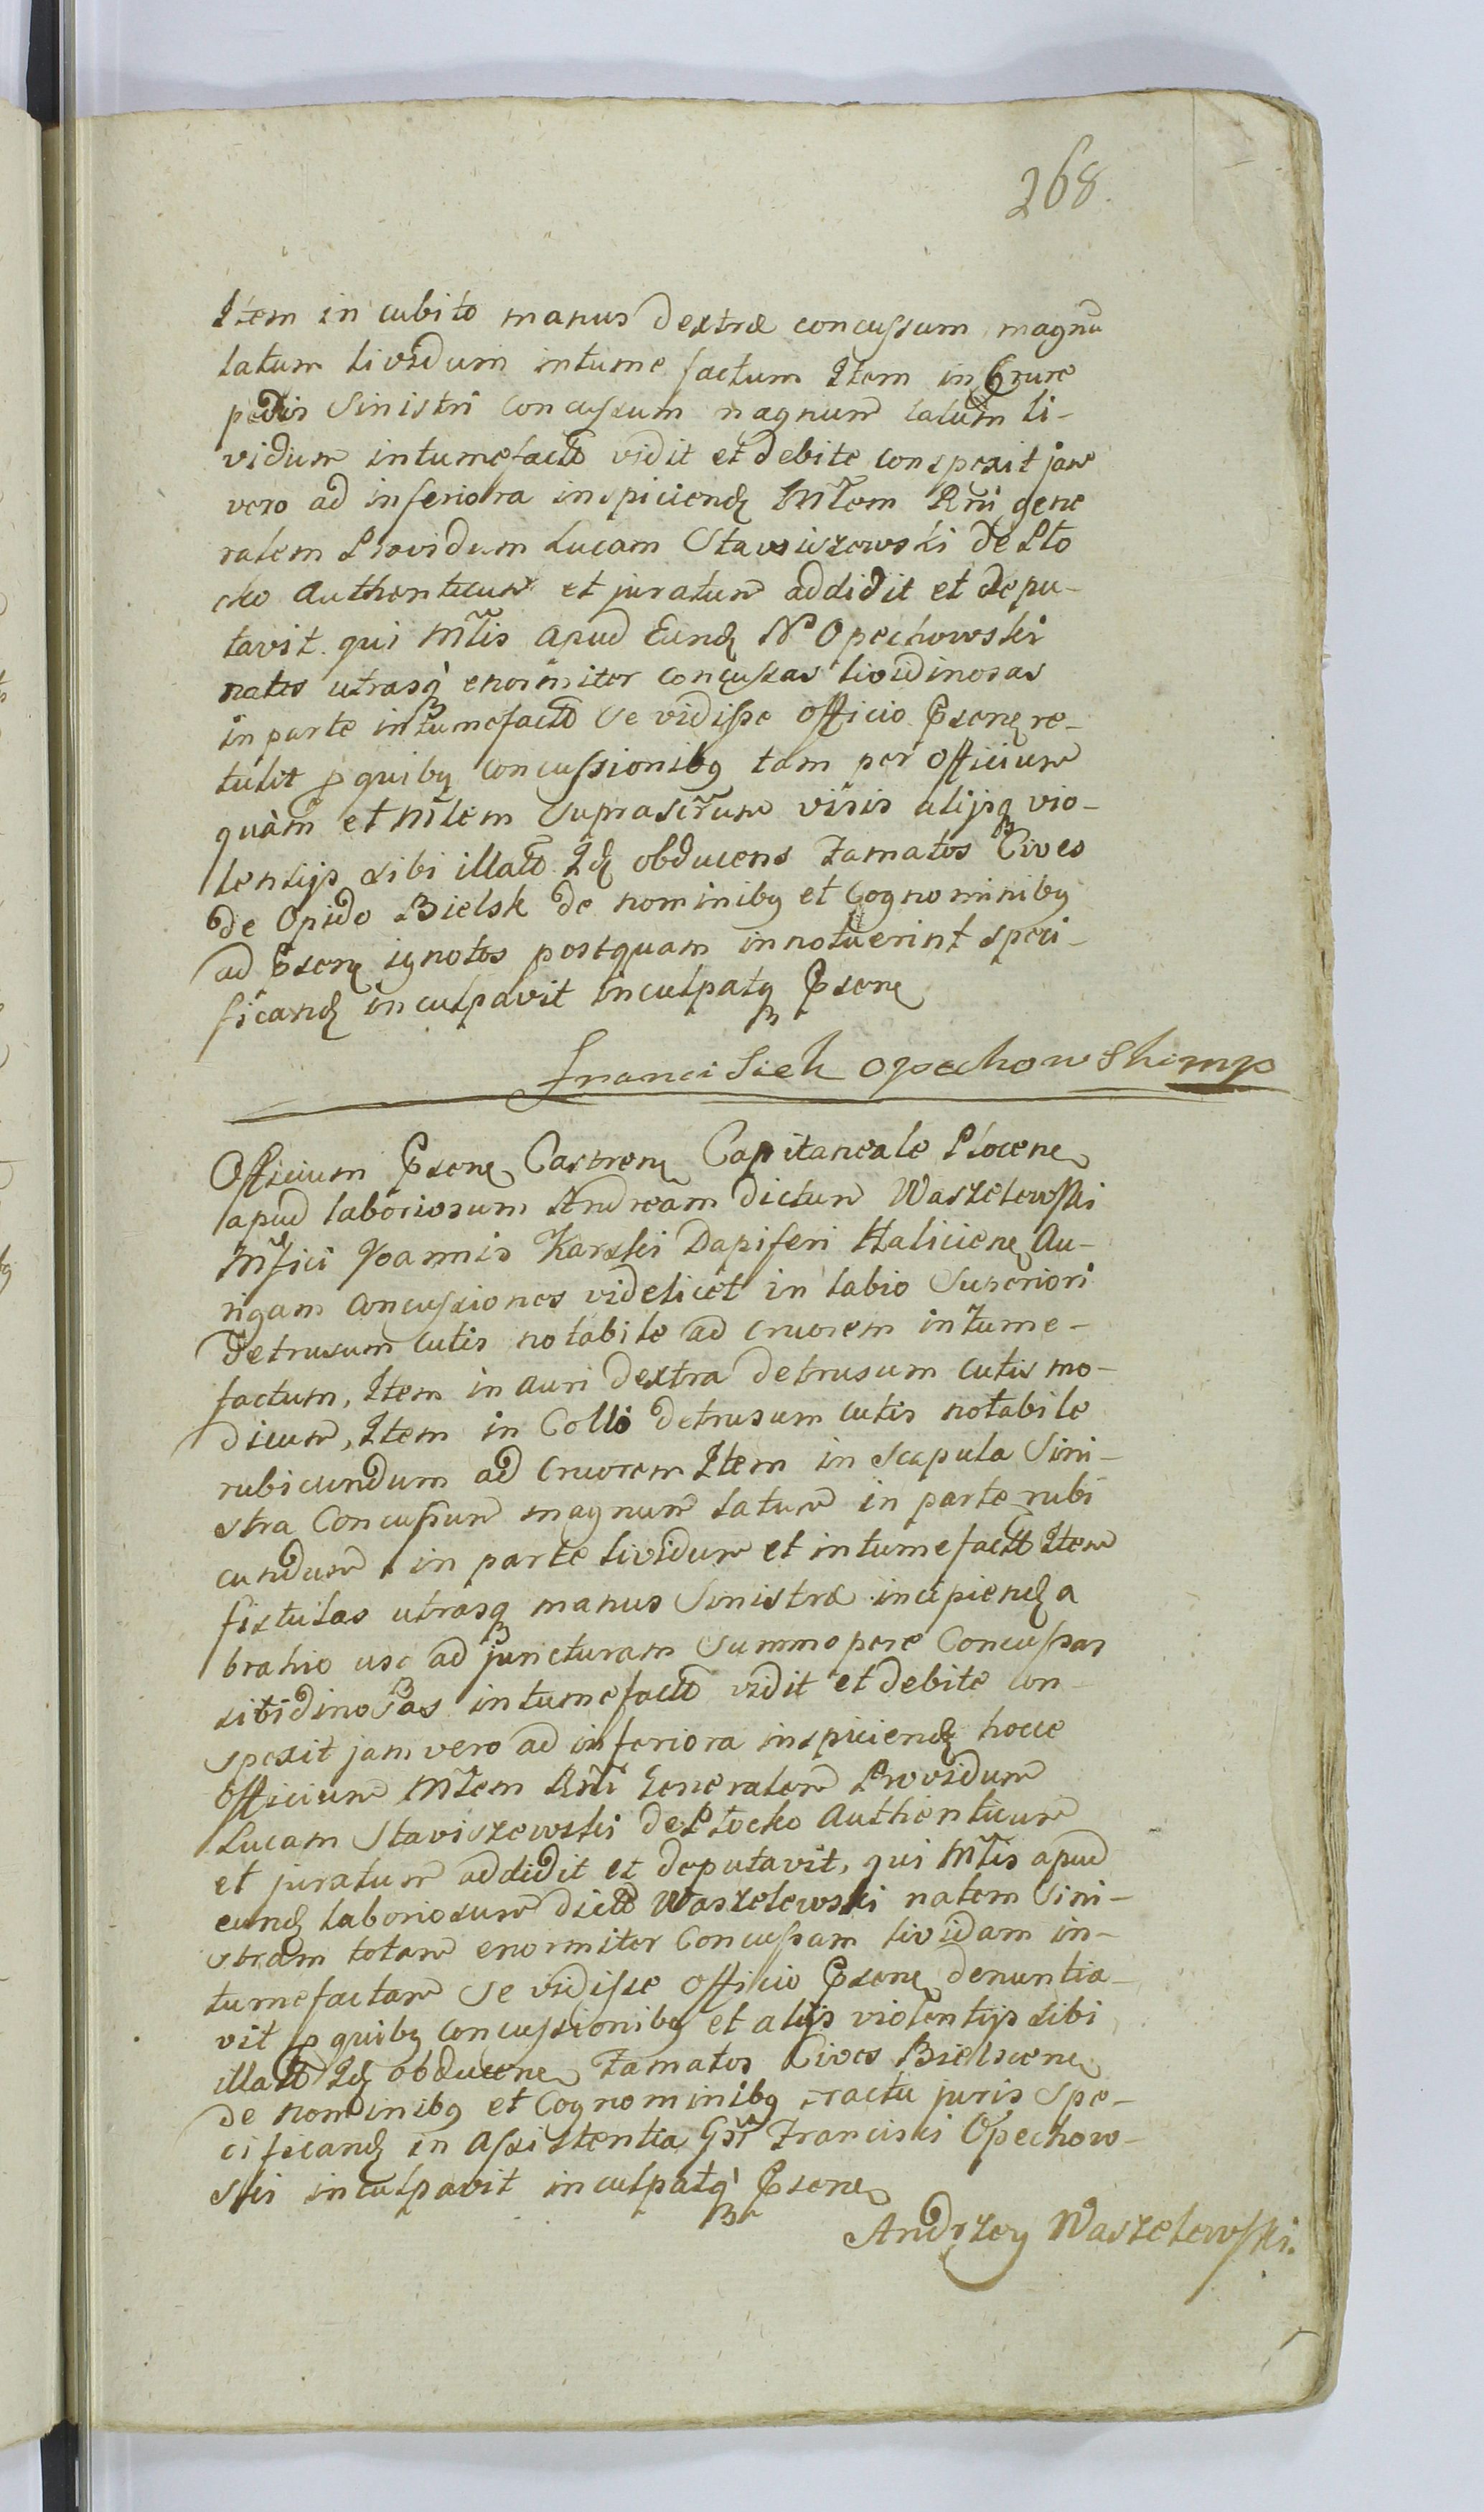 268.
Item in cubito manus dextræ concussum magnũ
latum lividum intume factum Item in Crure
pedis Sinistri concussum magnum latum li-
vidum intumefactũ vidit et debite conspexit jam
vero ad inferiora inspiciend Mtem Rni gene
ralem Providum Lucam Stawiszewski de Plo
cko Authenticum et juratum addidit et depu-
tavit. qui Mtis apud Eund No Opechowski
nates utrasq enormiter concussas lividinosas
in parte intumefactũ se vidisse officio Psene re-
tulit p quibq concussionibq tam per officium
quàm et Mtem suprascrtum visis alijsq vio-
lentijs sibi illatũ Id obducens Famatos Cives
de Opido Bielsk de nominibq et Cognominibq
ad Psens ignotos postquam innotuerint speci-
ficand inculpavit inculpatq Psene
Francisiek Opechowski mp
Officium Psene Castrens Capitaneale Plocene
apud laboriosum Andream dictum Waszelewski
Mfici Joannis Karski Dapiferi Haliciene Au-
rigam concussiones videlicet in labio Superiori
detrusum cutis notabile ad cruorem intume-
factum, Item in auri dextra detrusum cutis mo-
dicum, Item in Collo detrusum cutis notabile
rubicundum ad cruorem Item in scapula Sini-
stra Concussum magnum latum in parte rubi
cundum in parte lividum et intumefactũ Item
fistulas utrasq manus Sinistræ incipiend a
brahio usq ad juncturam summopere Concussas
libidinosas intumefactũ vidit et debite con-
spexit jam vero ad inferiora inspiciend hocce
Officium Mtem Rni Generalem Providum
Lucam Staviszewski de Plocko Authenticum
et juratum addidit et deputavit, qui Mtis apud
eund laboriosum dictũ Waszelewski natem Sini-
stram totam enormiter Concussam lividam in-
tumefactam se vidisse officio Psene denuntia-
vit p quibq concussionibq et alijs violentijs sibi
illatũ Id obducene Famatos Cives Bielscene
de nominibq et Cognominibq tractu juris spe-
cificand in Assistentia Gsi Francisci Opechow-
ski inculpavit inculpatq Psene
Andrzey Waszelewski.